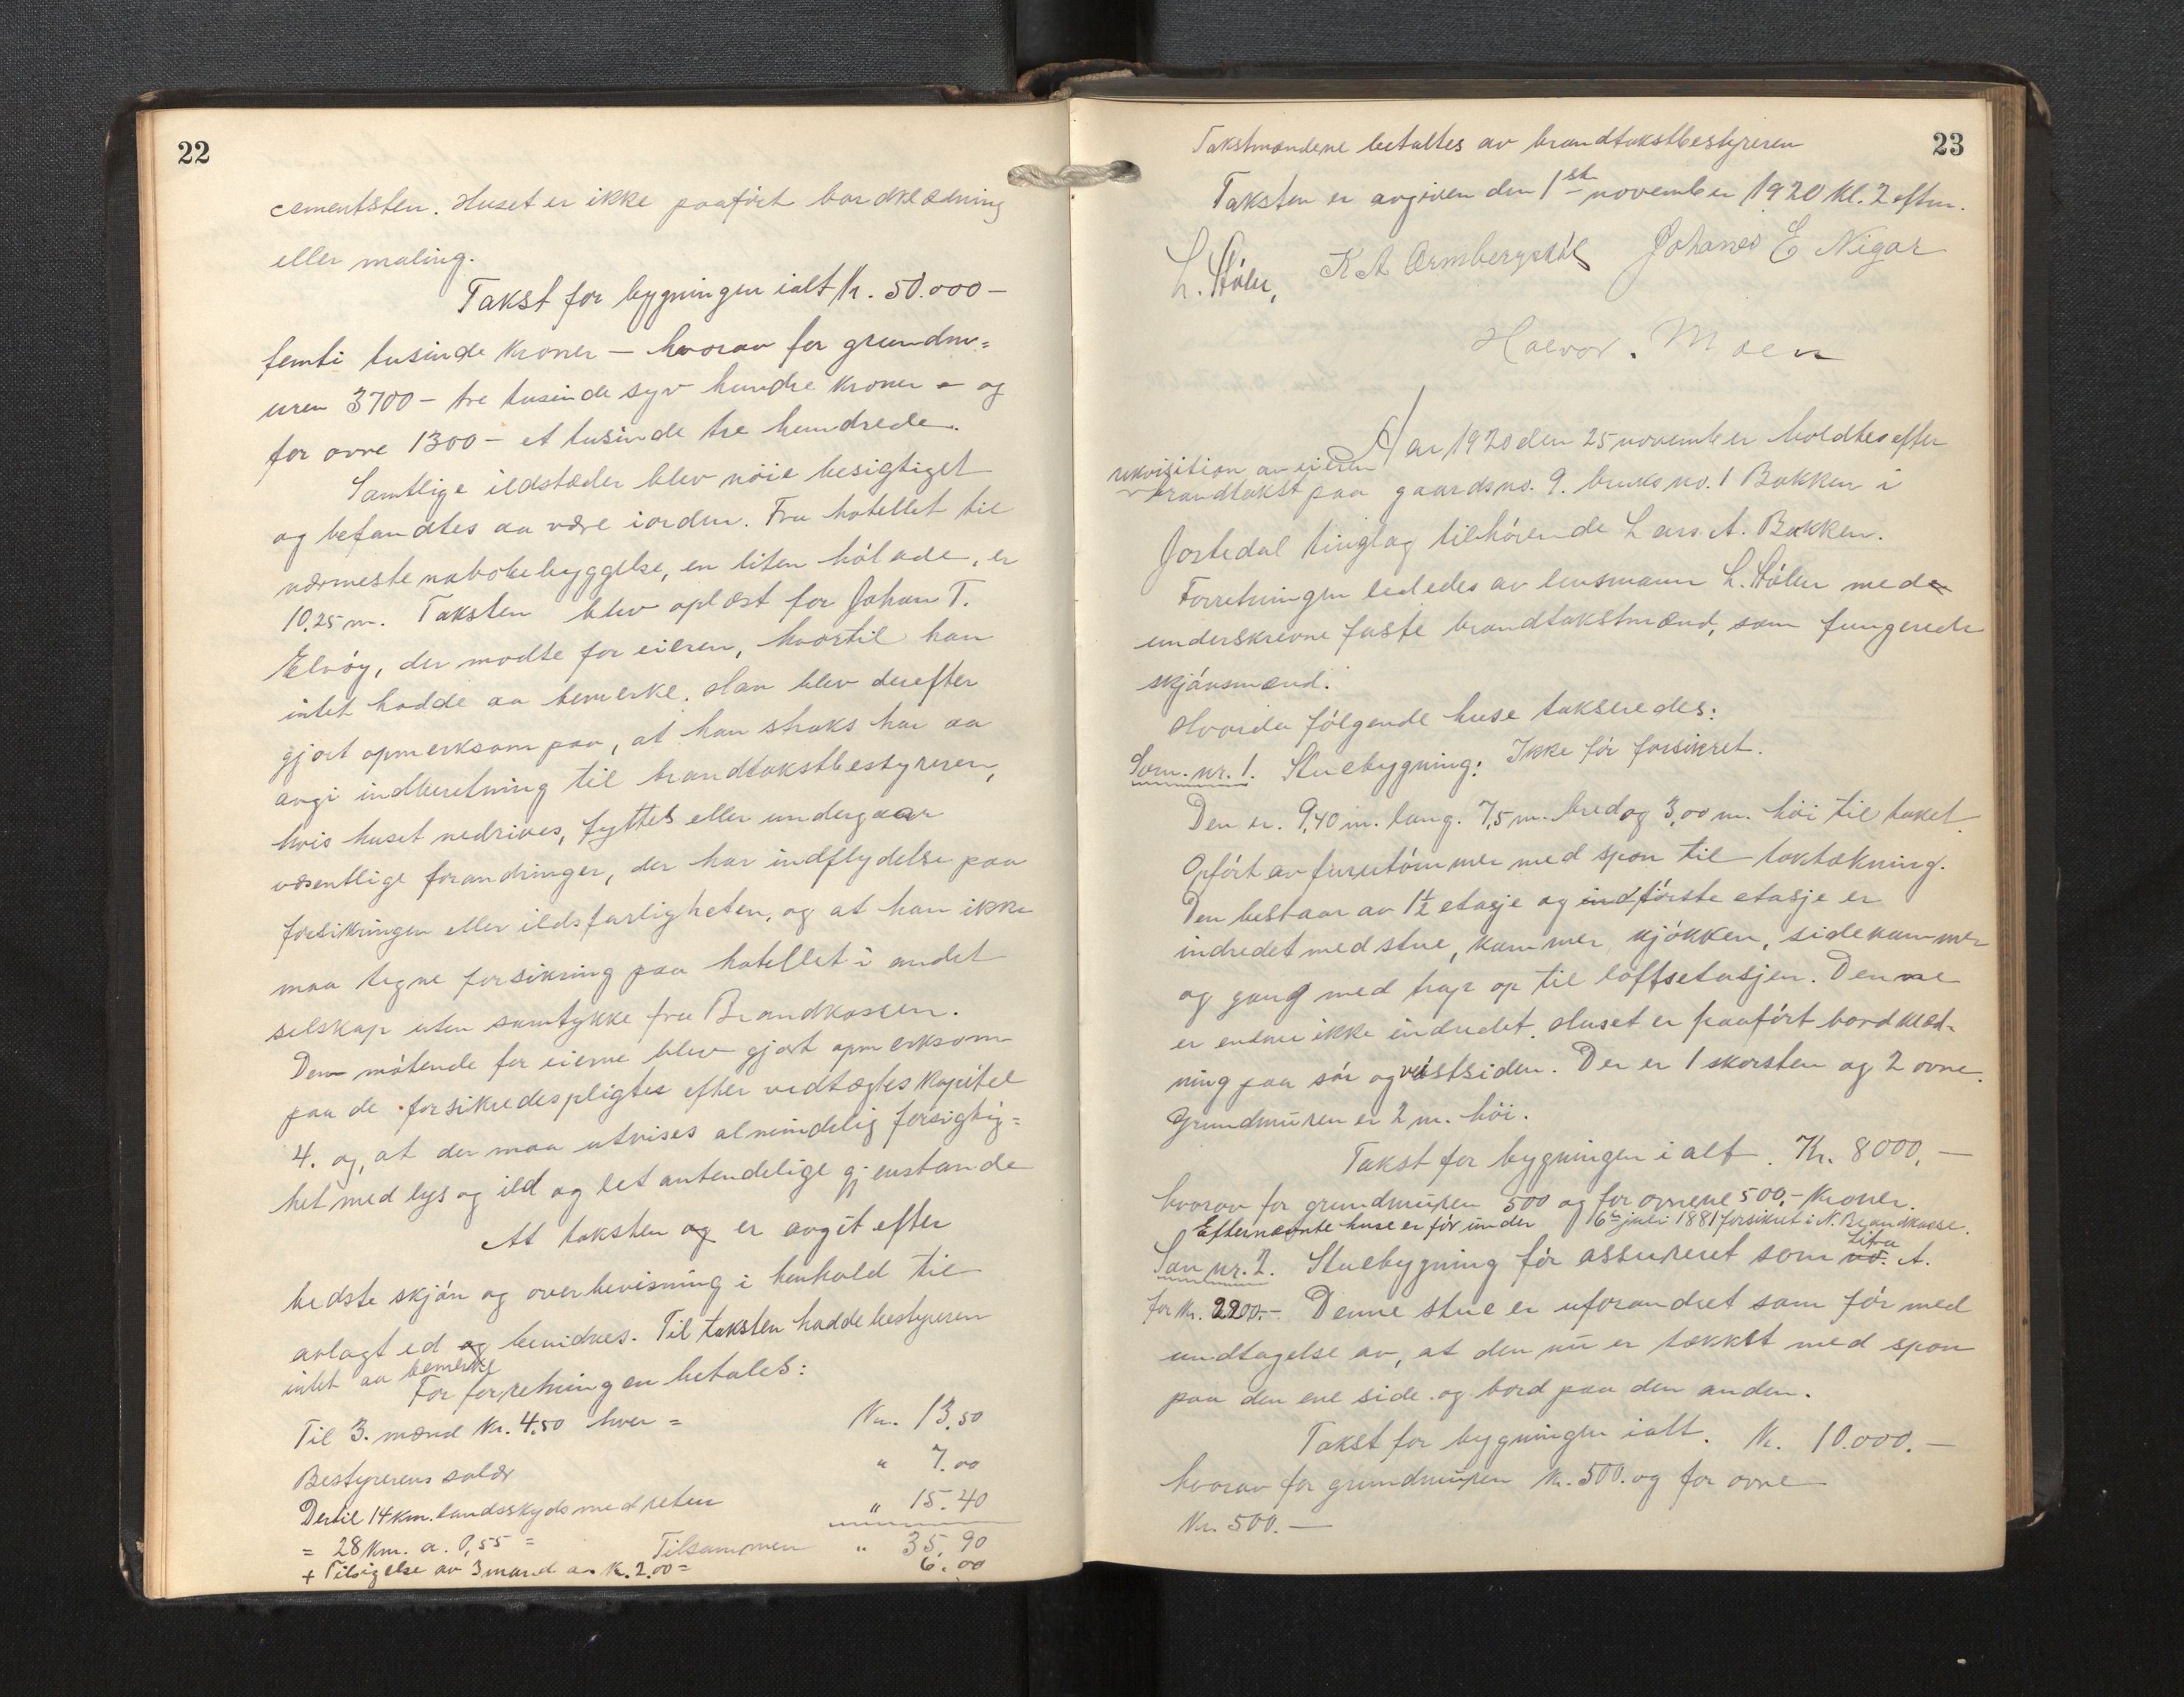 22
cementsten. Huset er ikke paaført bordklædning
eller maling.
Takst for bygningen ialt kr. 50.000 –
femti tusinde kroner – hvorav for grundmu=
uren 3700 – tre tusinde syv hundre kroner – og
for ovne 1300 – et tusinde tre hundrede.
Samtlige ildstæder blev nöie besigtiget
og befandtes aa være iorden. Fra hotellet til
nærmeste nabobebyggelse, en liten hölade, er
10,25 m. Taksten blev oplæst for Johan T.
Elvöy, der mødte for eieren, hvortil han
intet hadde aa bemerke. Han blev derefter
gjort opmerksom paa, at han straks har aa
avgi indberetning til brandtakstbestyreren,
hvis huset nedrives, fyttes eller undergaar
væsentlige forandringer, der har indflydelse paa
forsikringen eller ildsfarligheten, og at han ikke
maa tegne forsikring paa hotellet i andet
selskap uten samtykke fra Brandkassen.
Den mötende for eierne blev gjort opmerksom
paa de forsikredes pligter efter vedtægtes kapitel
4. og, at der maa utvises almindelig forsigtig=
het med lys og ild og let antendelige gjenstande
At taksten og er avgit efter
bedste skjön og overbevisning i henhold til
avlagt ed og bevidnes. Til taksten hadde bestyreren
intet aa bemerke
For forretningen betales:
Til 3. mænd kr. 4,50 hver = Kr. 13,50
Bestyrerens salær " 7.00
Dertil 14 km. landsskyds med retur " 15.40
= 28 km. a. 0,55 = Tilsammen " 35,90
+ Tilsigelse av 3 mænd a. k. 2.00 = 6.00
23
Takstmændene betaltes av brandtakstbestyreren
Taksten er avgiven den 1ste november 1920 kl. 2 eftm.
L. Stölen, K A Ormbergstöl Johanes E Nigar
Halvor. Moen
Aar 1920 den 25 november holdtes efter
rekvisition av eieren
brandtakst paa gaardsno. 9. bruks no. 1 Bakken i
Jostedal tinglag tilhörende Lars A. Bakken.
Forretningen lededes av lensmann L. Stölen med de
underskrevne faste brandtakstmænd, som fungerede
skjönsmænd.
Hvorda fölgende huse takseredes:
Som. nr. 1. Stuebygning: Ikke för forsikret.
Den er. 9,40 m. lang. 7,5 m. bred og 3,00 m. höi til taket.
Opfört av furutömmer med spon til taktækning.
Den bestaar av 1½ etasje og ind förste etasje er
indredet med stue, kammer, kjökken, sidekammer
og gang med trap op til loftsetasjen. Denne
er endnu ikke indredet. Huset er paafört bordklæd-
ning paa sör og vestsiden. Der er 1 skorsten og 2 ovne.
Grundmuren er 2 m. höi.
Takst for bygningen i alt. Kr. 8000, –
hvorav for grundmuren 500 og for ovnene 500,- kroner.
Efternævnte huse er för under 6te juli 1881 forsikret i N. Brandkasse.
Som nr. 2. Stuebygning för assureret som no. Litra A.
for kr. 2200.- Denne stue er uforandret som för med
undtagelse av, at den nu er tækket med spon
paa den ene side og bord paa den anden.
Takst for bygningen ialt. Kr. 10.000. –
hvorav for grundmuren kr. 500. og for ovne
Kr. 500. –